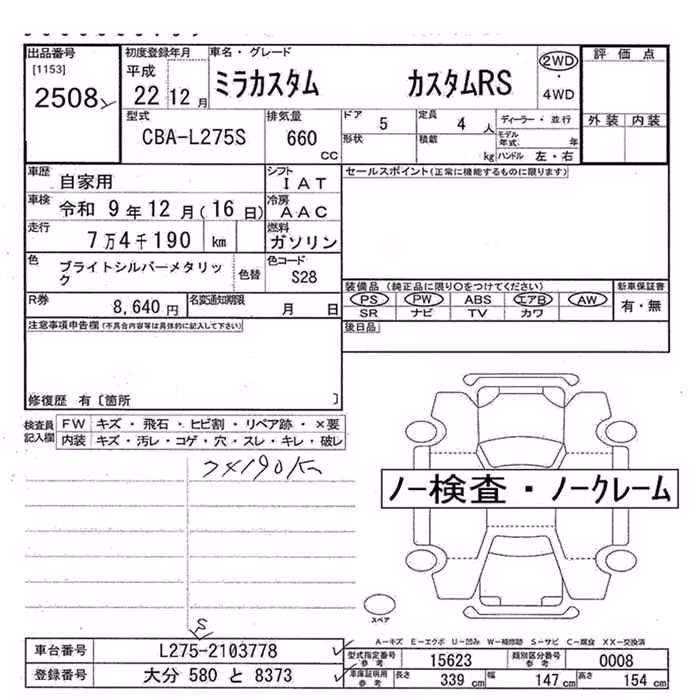 出品番号 初度登録年月 車名・グレード 評価点
[1153] 平成 ミラカスタム カスタムRS 2WD
2508 22 12月 ・ 4WD
外装 内装
型式 排気量 ドア 5 定員 4人 ディーラー・並行
CBA-L275S 660 cc 形状 積載 kg モデル年式. 年
ハンドル 左・右
車歴 自家用 シフト IAT セールスポイント(正常に機能するものに限ります)
車検 令和 9年12月(16日) 冷房 AAC
走行 7万4千190 km 燃料 ガソリン
色 ブライトシルバーメタリック 色替 色コード S28
装備品(純正品に限り○をつけてください) 新車保証書
PS PW ABS エアB AW 有・無
SR ナビ TV カワ
R券 8,640円 名変通知期限 月 日
後日品
注意事項申告欄(不具合内容等は具体的に記入して下さい)
修復歴 有〔箇所 〕
検査員記入欄 FW キズ・飛石・ヒビ割・リペア跡・×要
内装 キズ・汚レ・コゲ・穴・スレ・キレ・破レ
ノー検査・ノークレーム
スペア
S
A-キズ E-エクボ U-凹み W-補修跡 S-サビ C-腐食 XX-交換済
車台番号 L275-2103778
型式指定番号 参考 15623 類別区分番号 参考 0008
登録番号 大分 580 と 8373
車庫証明用 参考 長さ 339 cm 幅 147 cm 高さ 154 cm